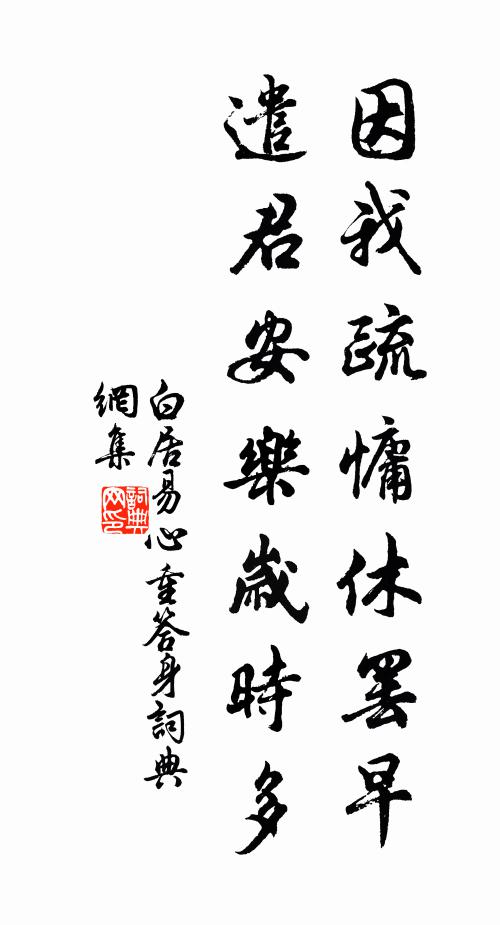 因我疏慵休罷早
遣君安樂歲時多
白居易心重答身詞典
網集
詞典
网印